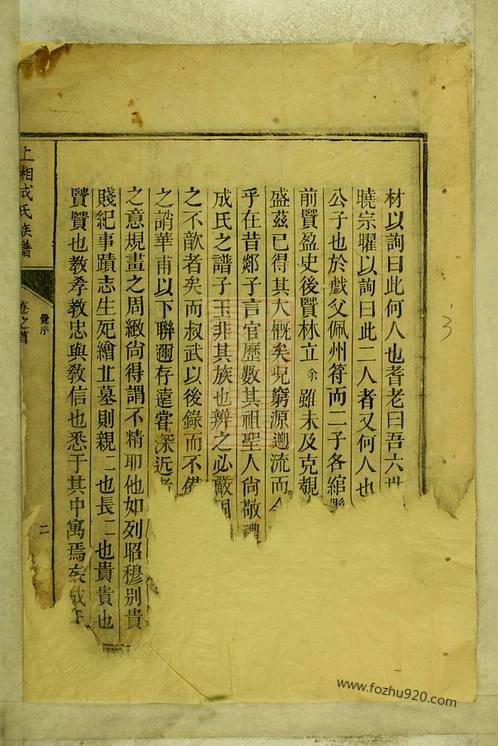 材以詢曰此何人也耆老曰吾六世
曉宗躍以詢曰此二人者又何人也
公子也於戲父佩州符而二子各綰縣
前賢盈史後賢林立余雖未及克覩
盛茲已得其大概矣况窮源遡流而
乎在昔郯子言官歷數其祖聖人尙敬禮
成氏之譜子玉非其族也辨之必嚴
之不歆者矣而叔武以後錄而不備
之誚華甫以下聯邇存遠嘗深近
之意規畫之周緻尙得謂不精耶他如列昭穆别貴
賤紀事蹟志生死繪北墓則親二也長二也貴貴也
賢賢也教孝教忠與敎信也悉于其中寓焉矣
上湘成氏族譜
卷之首
譽序
二
3
www.fozhu920.com